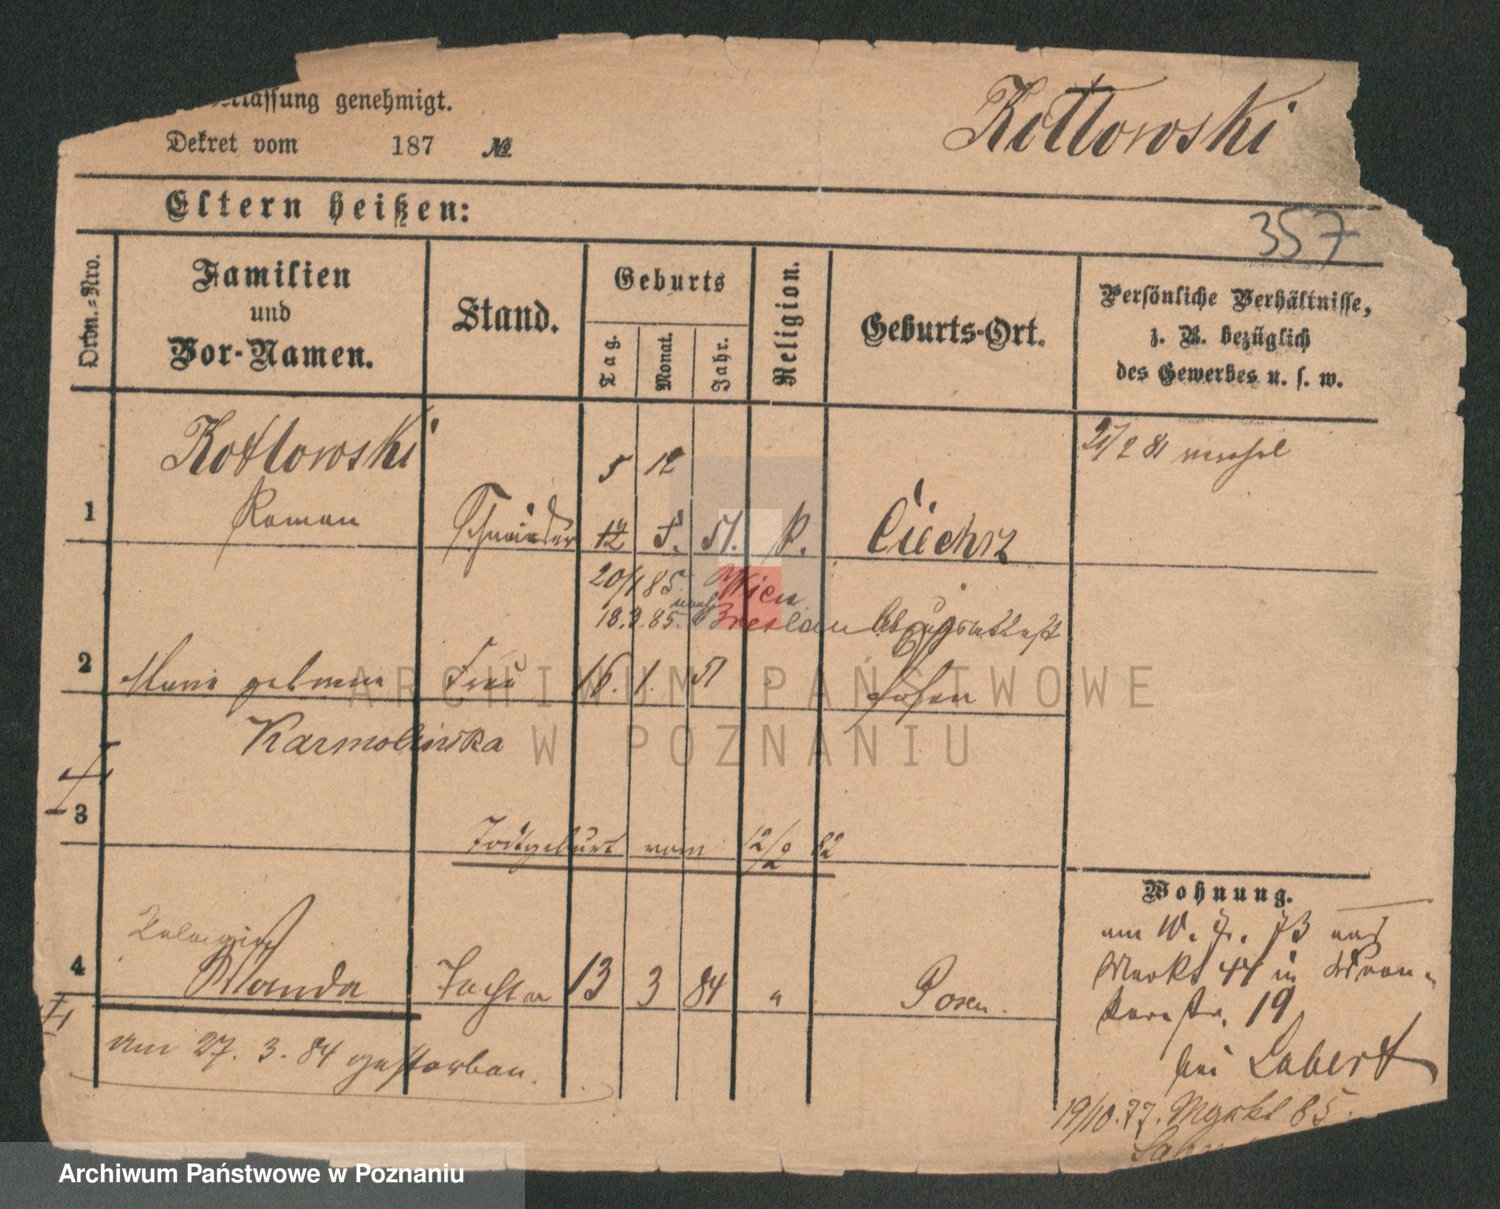 lassung genehmigt.
Kotlowski
Dekret vom 187 №
Eltern heißen:
357
Ordn.-Nro.
Familien
und
Vor-Namen.
Stand.
Geburts
Tag.
Monat.
Jahr.
Religion.
Geburts-Ort.
Persönliche Verhältnisse,
z. B. bezüglich
des Gewerbes u. s. w.
Kotlowski
5 12
2/2 81
1 Roman Schneider 12 5. 51. k.
20/1 85. Wien
18.3.85. nach Breslau
2 Marie geborene Frau 16. 1. 51 Posen
3
Todtgeburt vom 12/2 82
Wohnung.
am 10. 7. 73 aus
Markt 44 in Wron-
4 Wanda Tochter 13 3 84 " Posen.
kerstr. 19
am 27. 3. 84 gestorben.
bei Labert
19/10.77. 85.
ARCHIWUM PAŃSTWOWE
W POZNANIU
Archiwum Państwowe w Poznaniu